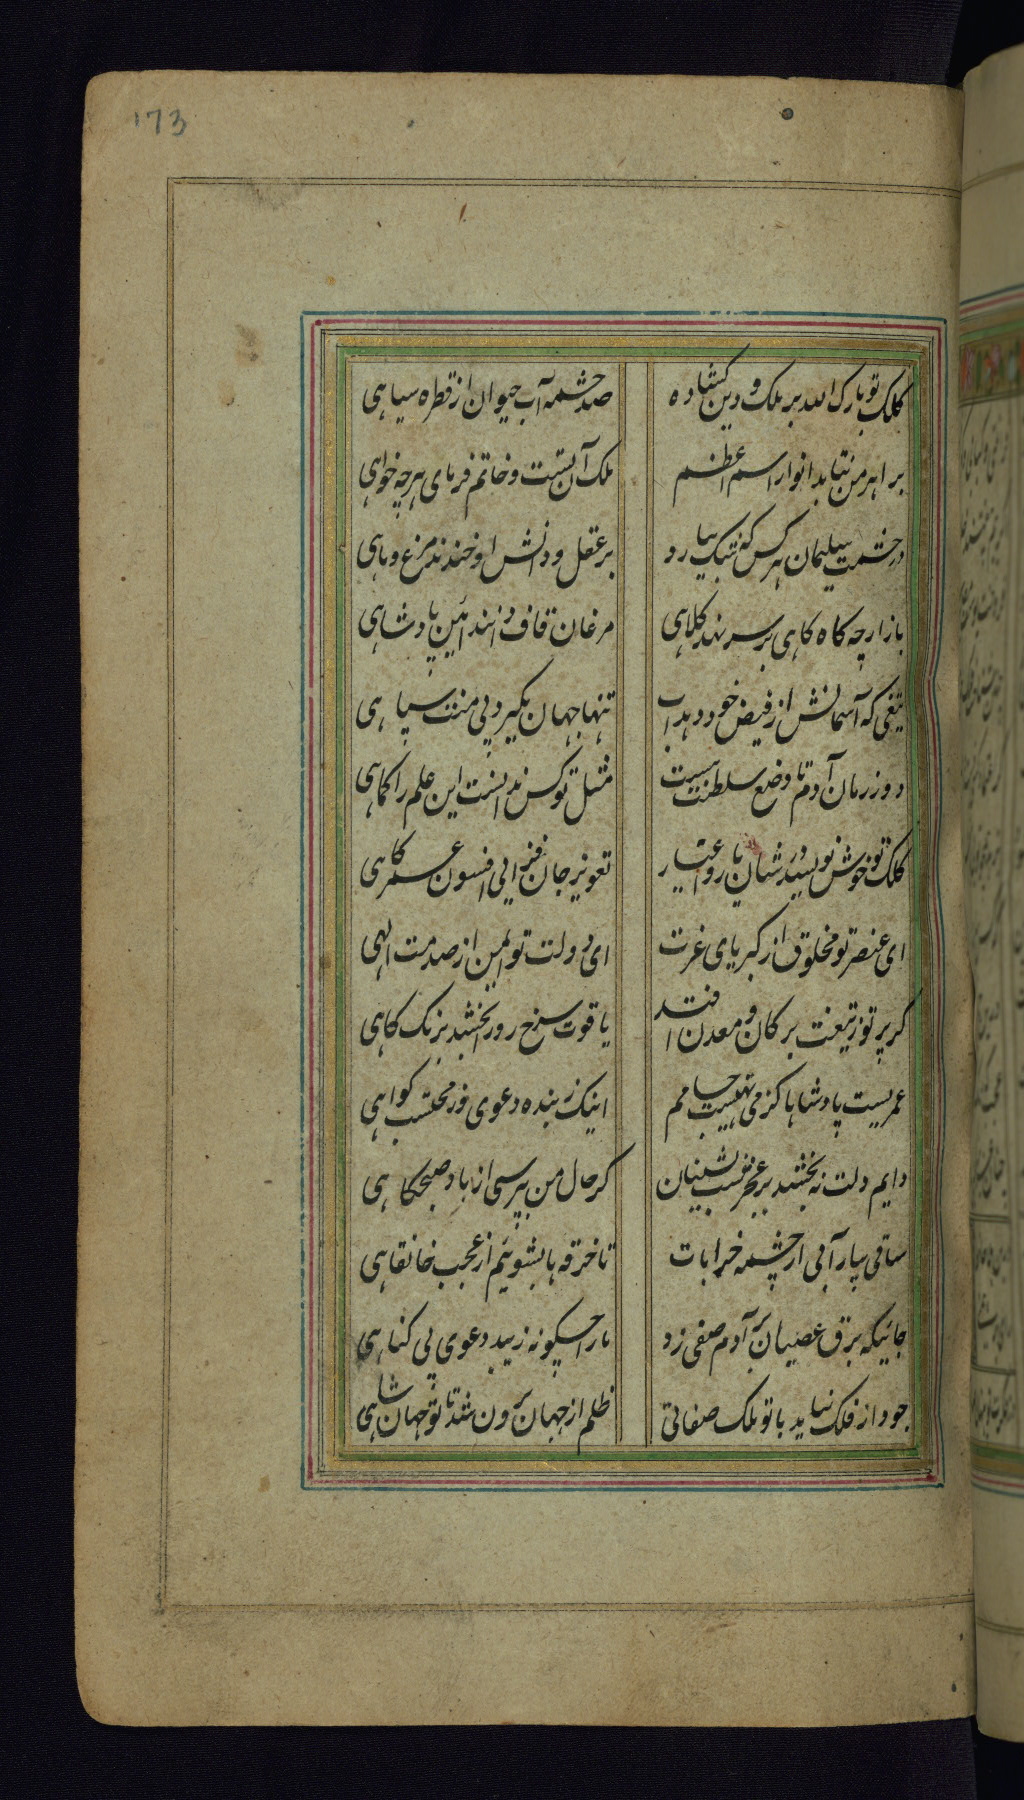 173
کلک تو بارک الله بر ملک و دین گشاده
صد چشمه آب حیوان از قطره سیاهی
بر اهرمن نتابد انوار اسم اعظم
ملک آن تست و خاتم فرمای هر چه خواهی
در حشمت سلیمان هر کس که شک بیارد
بر عقل و دانش او خندند مرغ و ماهی
باز ارچه کاه کاهی بر سر نهد کلاهی
مرغان قاف دانند آئین پادشاهی
تیغی که آسمانش از فیض خود دهد آب
تنها جهان بگیرد بی منت سپاهی
دور زمان آدم تا وضع سلطنت هست
مثل تو کس ندانست این علم را کماهی
کلک تو خوش نویسد در شان یار و اغیار
تعویذ جان فزایی افسون عمر کاهی
ای عنصر تو مخلوق از کبریای عزت
ای دولت تو ایمن از صدمت الهی
گر پرتو ز تیغت بر کان و معدن افتد
یاقوت سرخ رو را بخشد برنگ کاهی
عمریست پادشاها کز می تهیست جامم
اینک ز بنده دعوی وز محتسب گواهی
دایم دلت نه بخشد بر عجز شب نشینان
گر حال من بپرسی از باد صبحگاهی
ساقی بیار آبی از چشمه خرابات
تا خرقه ها بشوئیم از عجب خانقاهی
جائیکه برق عصیان بر آدم صفی زد
ما را چگونه زیبد دعوی بی گناهی
جود از فلک نیاید با تو ملک صفاتی
ظلم از جهان برون شد تا تو جهان شاهی